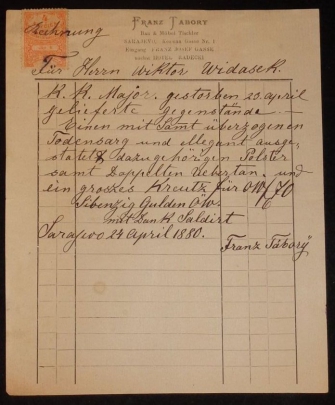 Rechnung
FRANZ TABORY
Bau & Möbel Tischler
SARAJEVO, Nr. 1
Eingang FRANZ JOSEF GASSE
HOTEL RADETZKI
Für Herrn Wiktor Widasek.
K. K. Major. gestorben 23. april
gelieferte gegenstände. —
Einen mit Samt überzogenen
Todensarg und ellegant ausge-
statet & dazugehörigen Polster
samt Doppelten Uebertan. und
ein groszes Kreutz für ÖW f 70
Sibenzig Gulden ÖW.
mit Dank Saldirt
Sarajevo 24 April 1880.
Franz Tábory